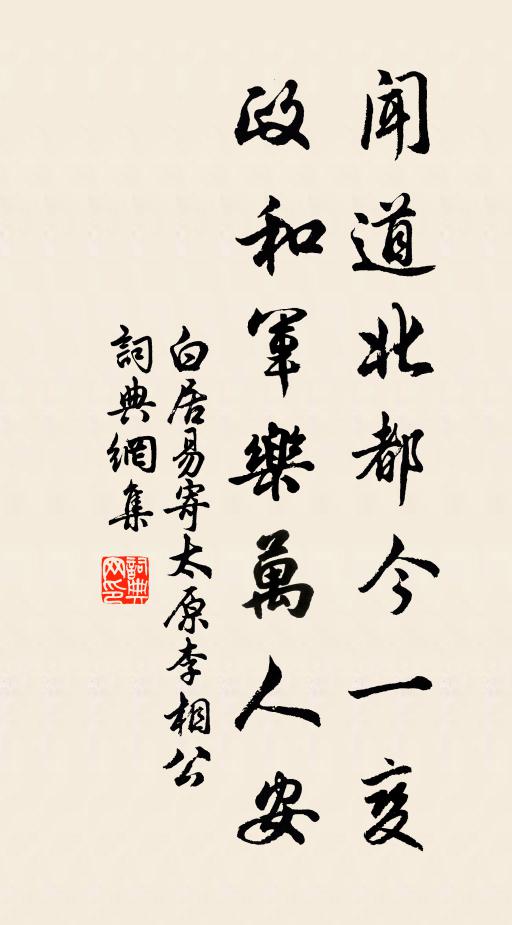 聞道北都今一变
政和軍樂萬人安
白居易寄太原李相公
詞典網集
詞典网印